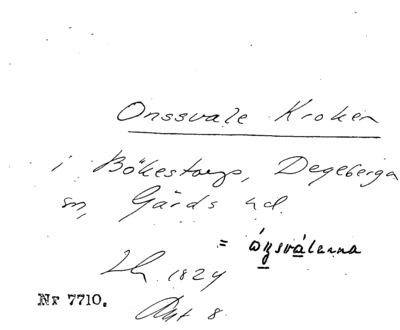 Onssvale Kroken
i Bökestorp, Degeberga
sn, Gärds hd.
= ónsválarna
1824
Nr 7710. Akt 8.